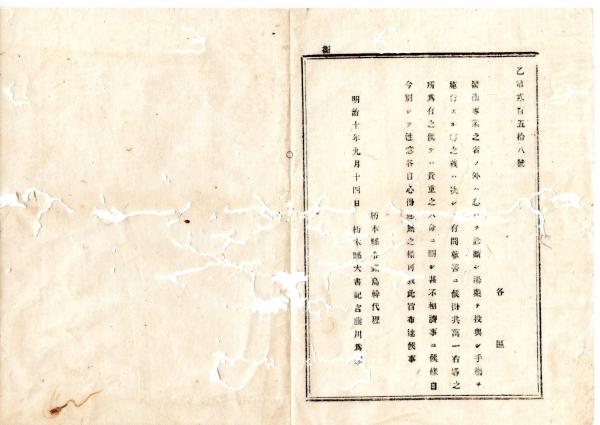 乙第貳百五拾八號
各區
醫術專業之者ノ外ハ ヲ診斷シ湯藥ヲ投與シ手術ヲ
施行スル 之義ハ决シ 有間敷 ニ候得共萬一右等之
所爲有之候テハ貴重之人命ニ關シ甚不相濟事ニ候條自
今別シテ注意各自必得 無之樣可致此旨布達候事
明治十年九月十四日
栃木縣令鍋島幹代理
栃木縣大書記官 川爲